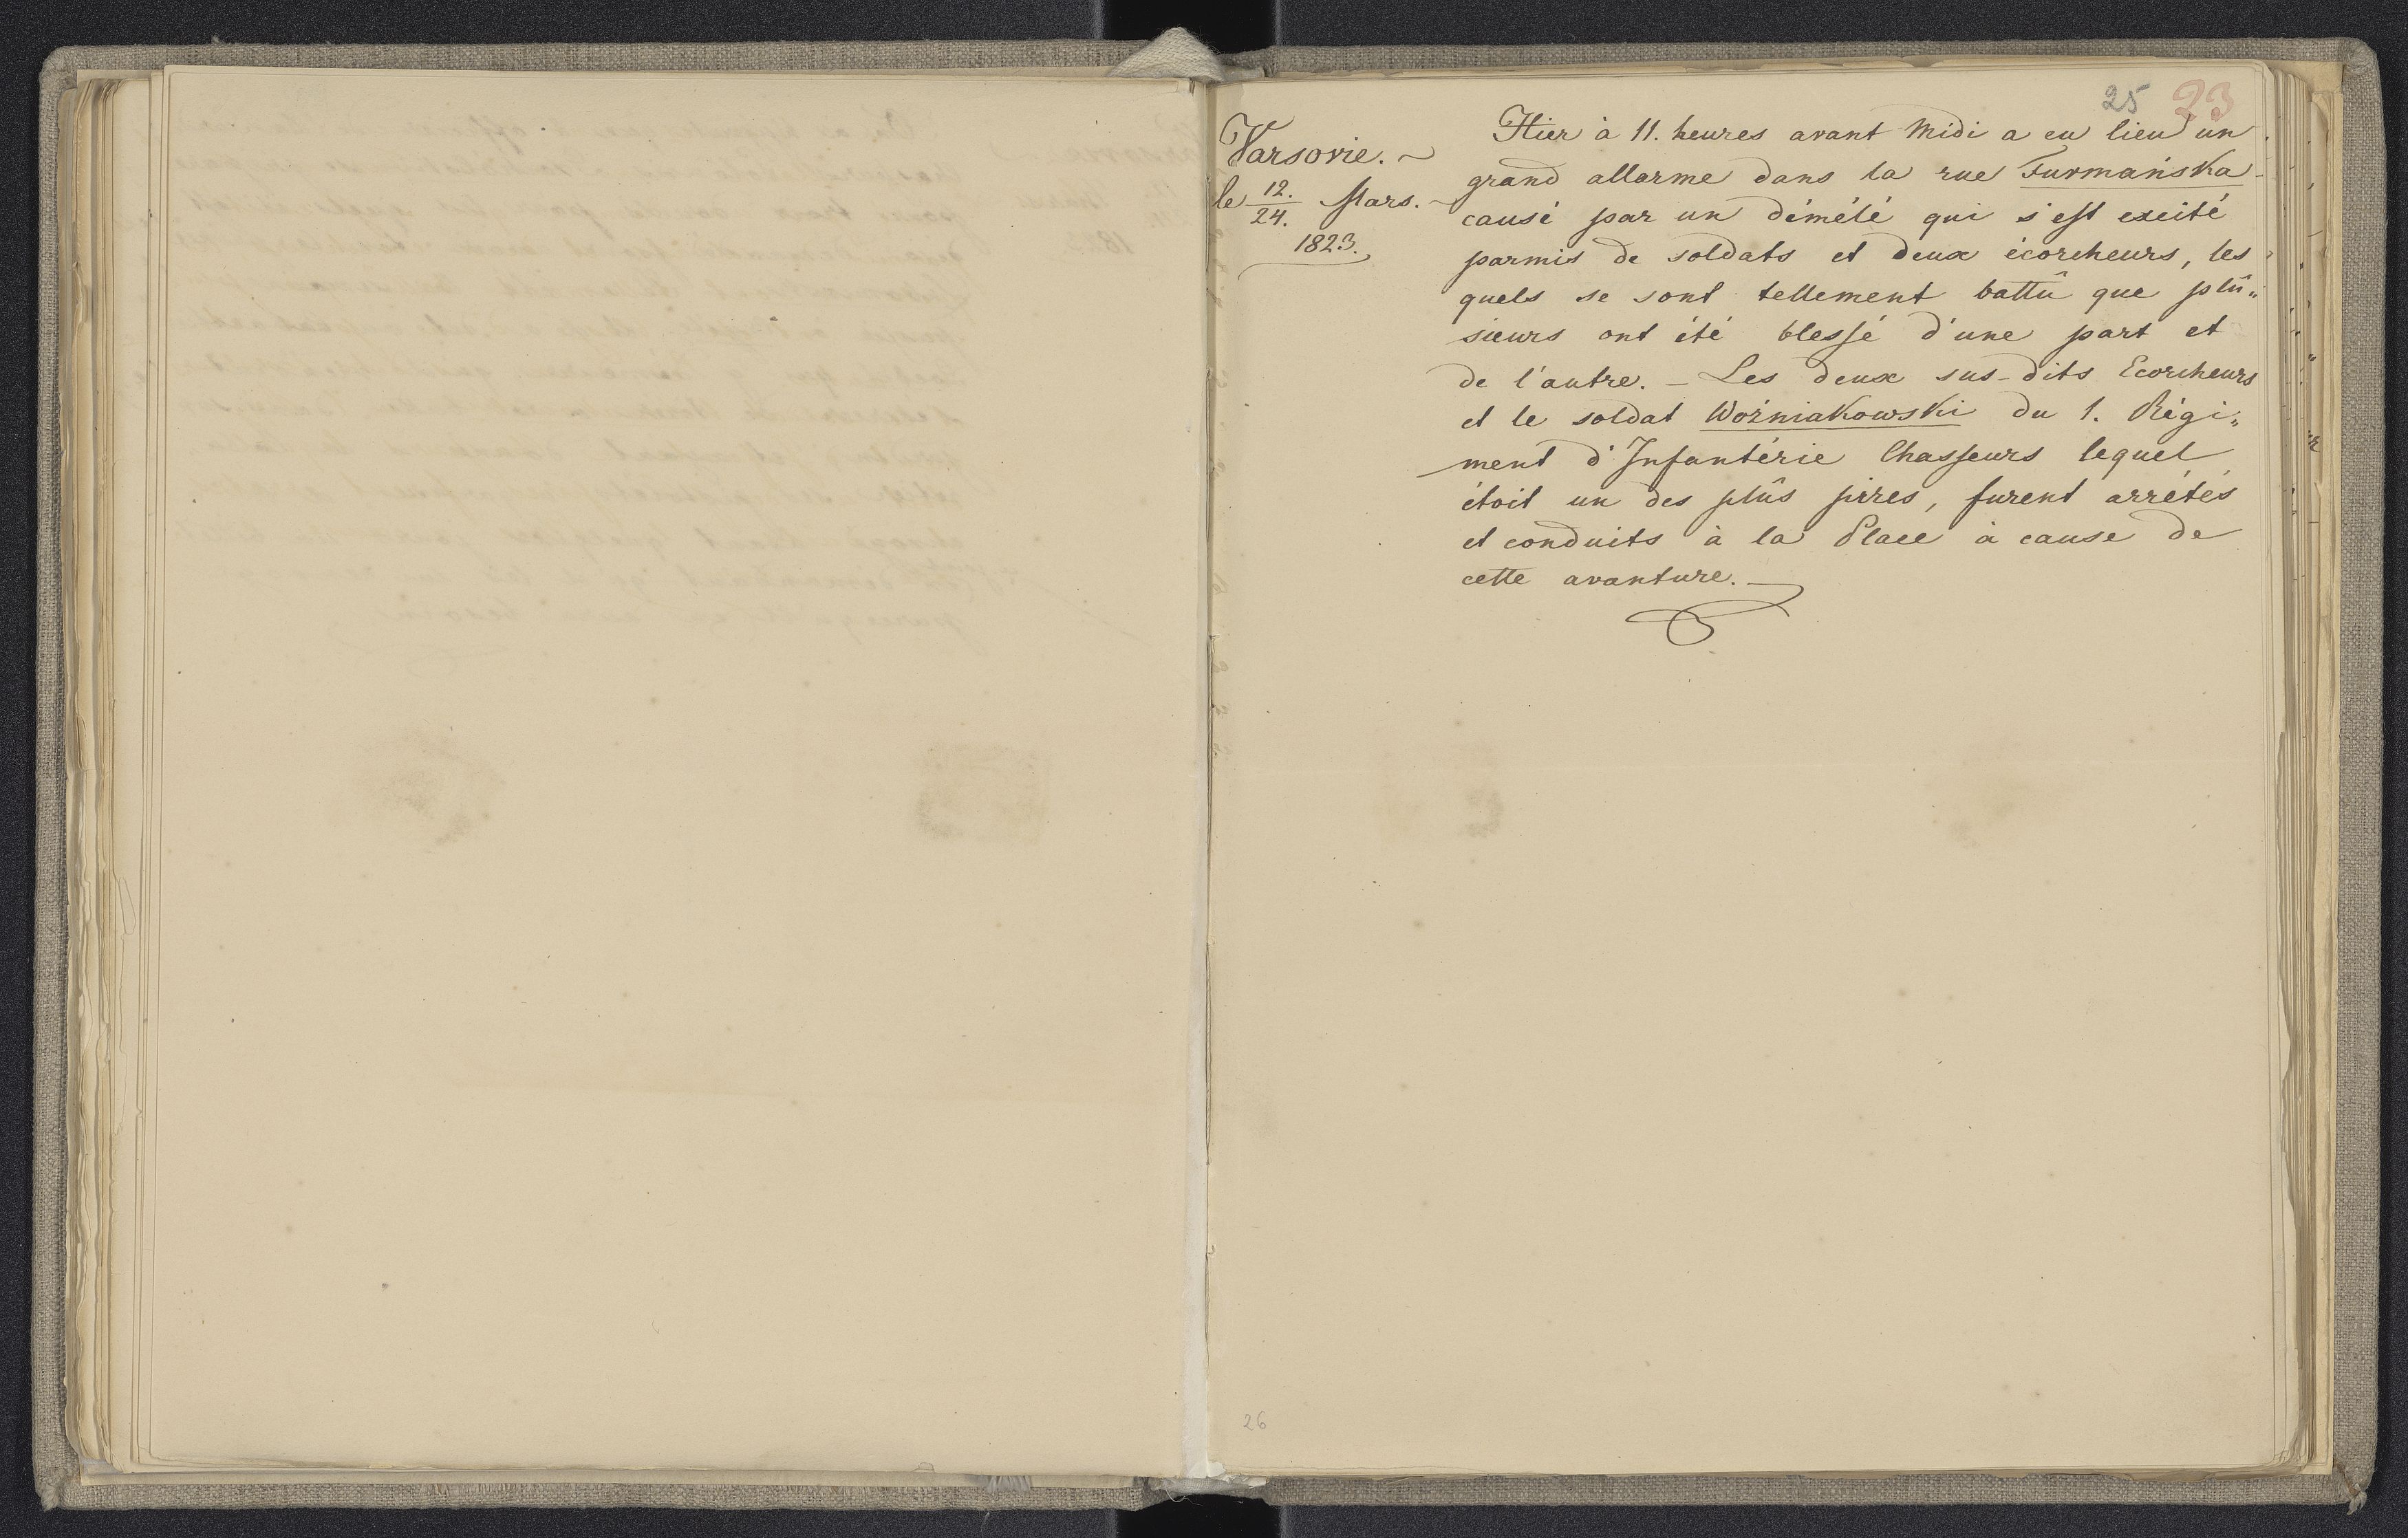 25 23
Varsovie. ~
le 12./24. Mars. ~
1823.
Hier à 11. heures avant Midi a eu lieu un
grand allarme dans la rue Furmańska
causé par un démélé qui s'est excité
parmis de soldats et deux écorcheurs, les
quels se sont tellement battû que plû„
sieurs ont été blessé d'une part et
de l'autre. – Les deux sus-dits Ecorcheurs
et le soldat Woźniakowski du 1. Régi„
ment d'Infantérie Chasseurs lequel
étoit un des plûs pires, furent arrétés
et conduits à la Place à cause de
cette avanture. –
26